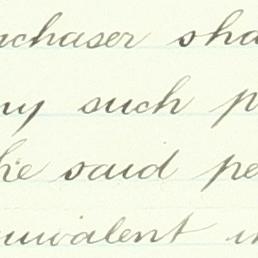 rchaser sha
ny such p
he said pe
quivalent i